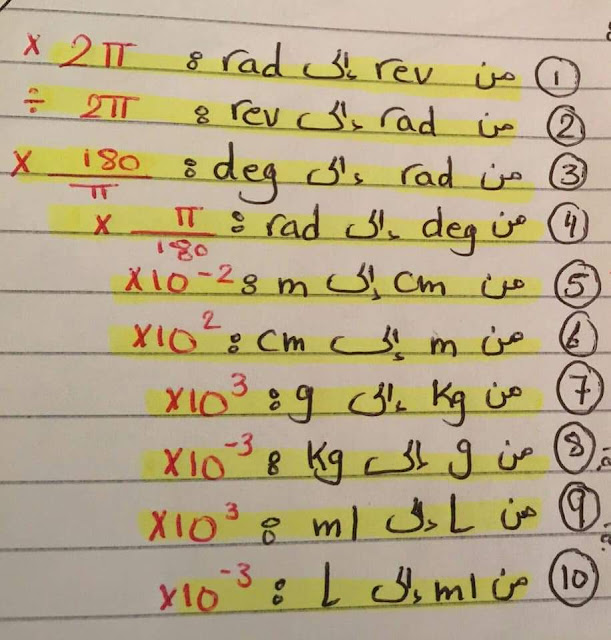 ① من rev إلى rad : × 2π
② من rad إلى rev : ÷ 2π
③ من rad إلى deg : × 180/π
④ من deg إلى rad : × π/180
⑤ من cm إلى m : ×10⁻²
⑥ من m إلى cm : ×10²
⑦ من Kg إلى g : ×10³
⑧ من g إلى Kg : ×10⁻³
⑨ من L إلى ml : ×10³
⑩ من ml إلى L : ×10⁻³